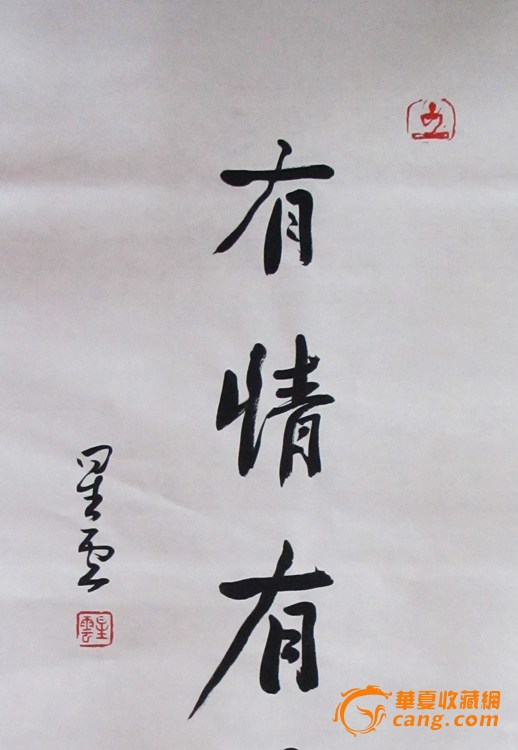 有情有
星雲
星雲
華夏收藏網
cang.com